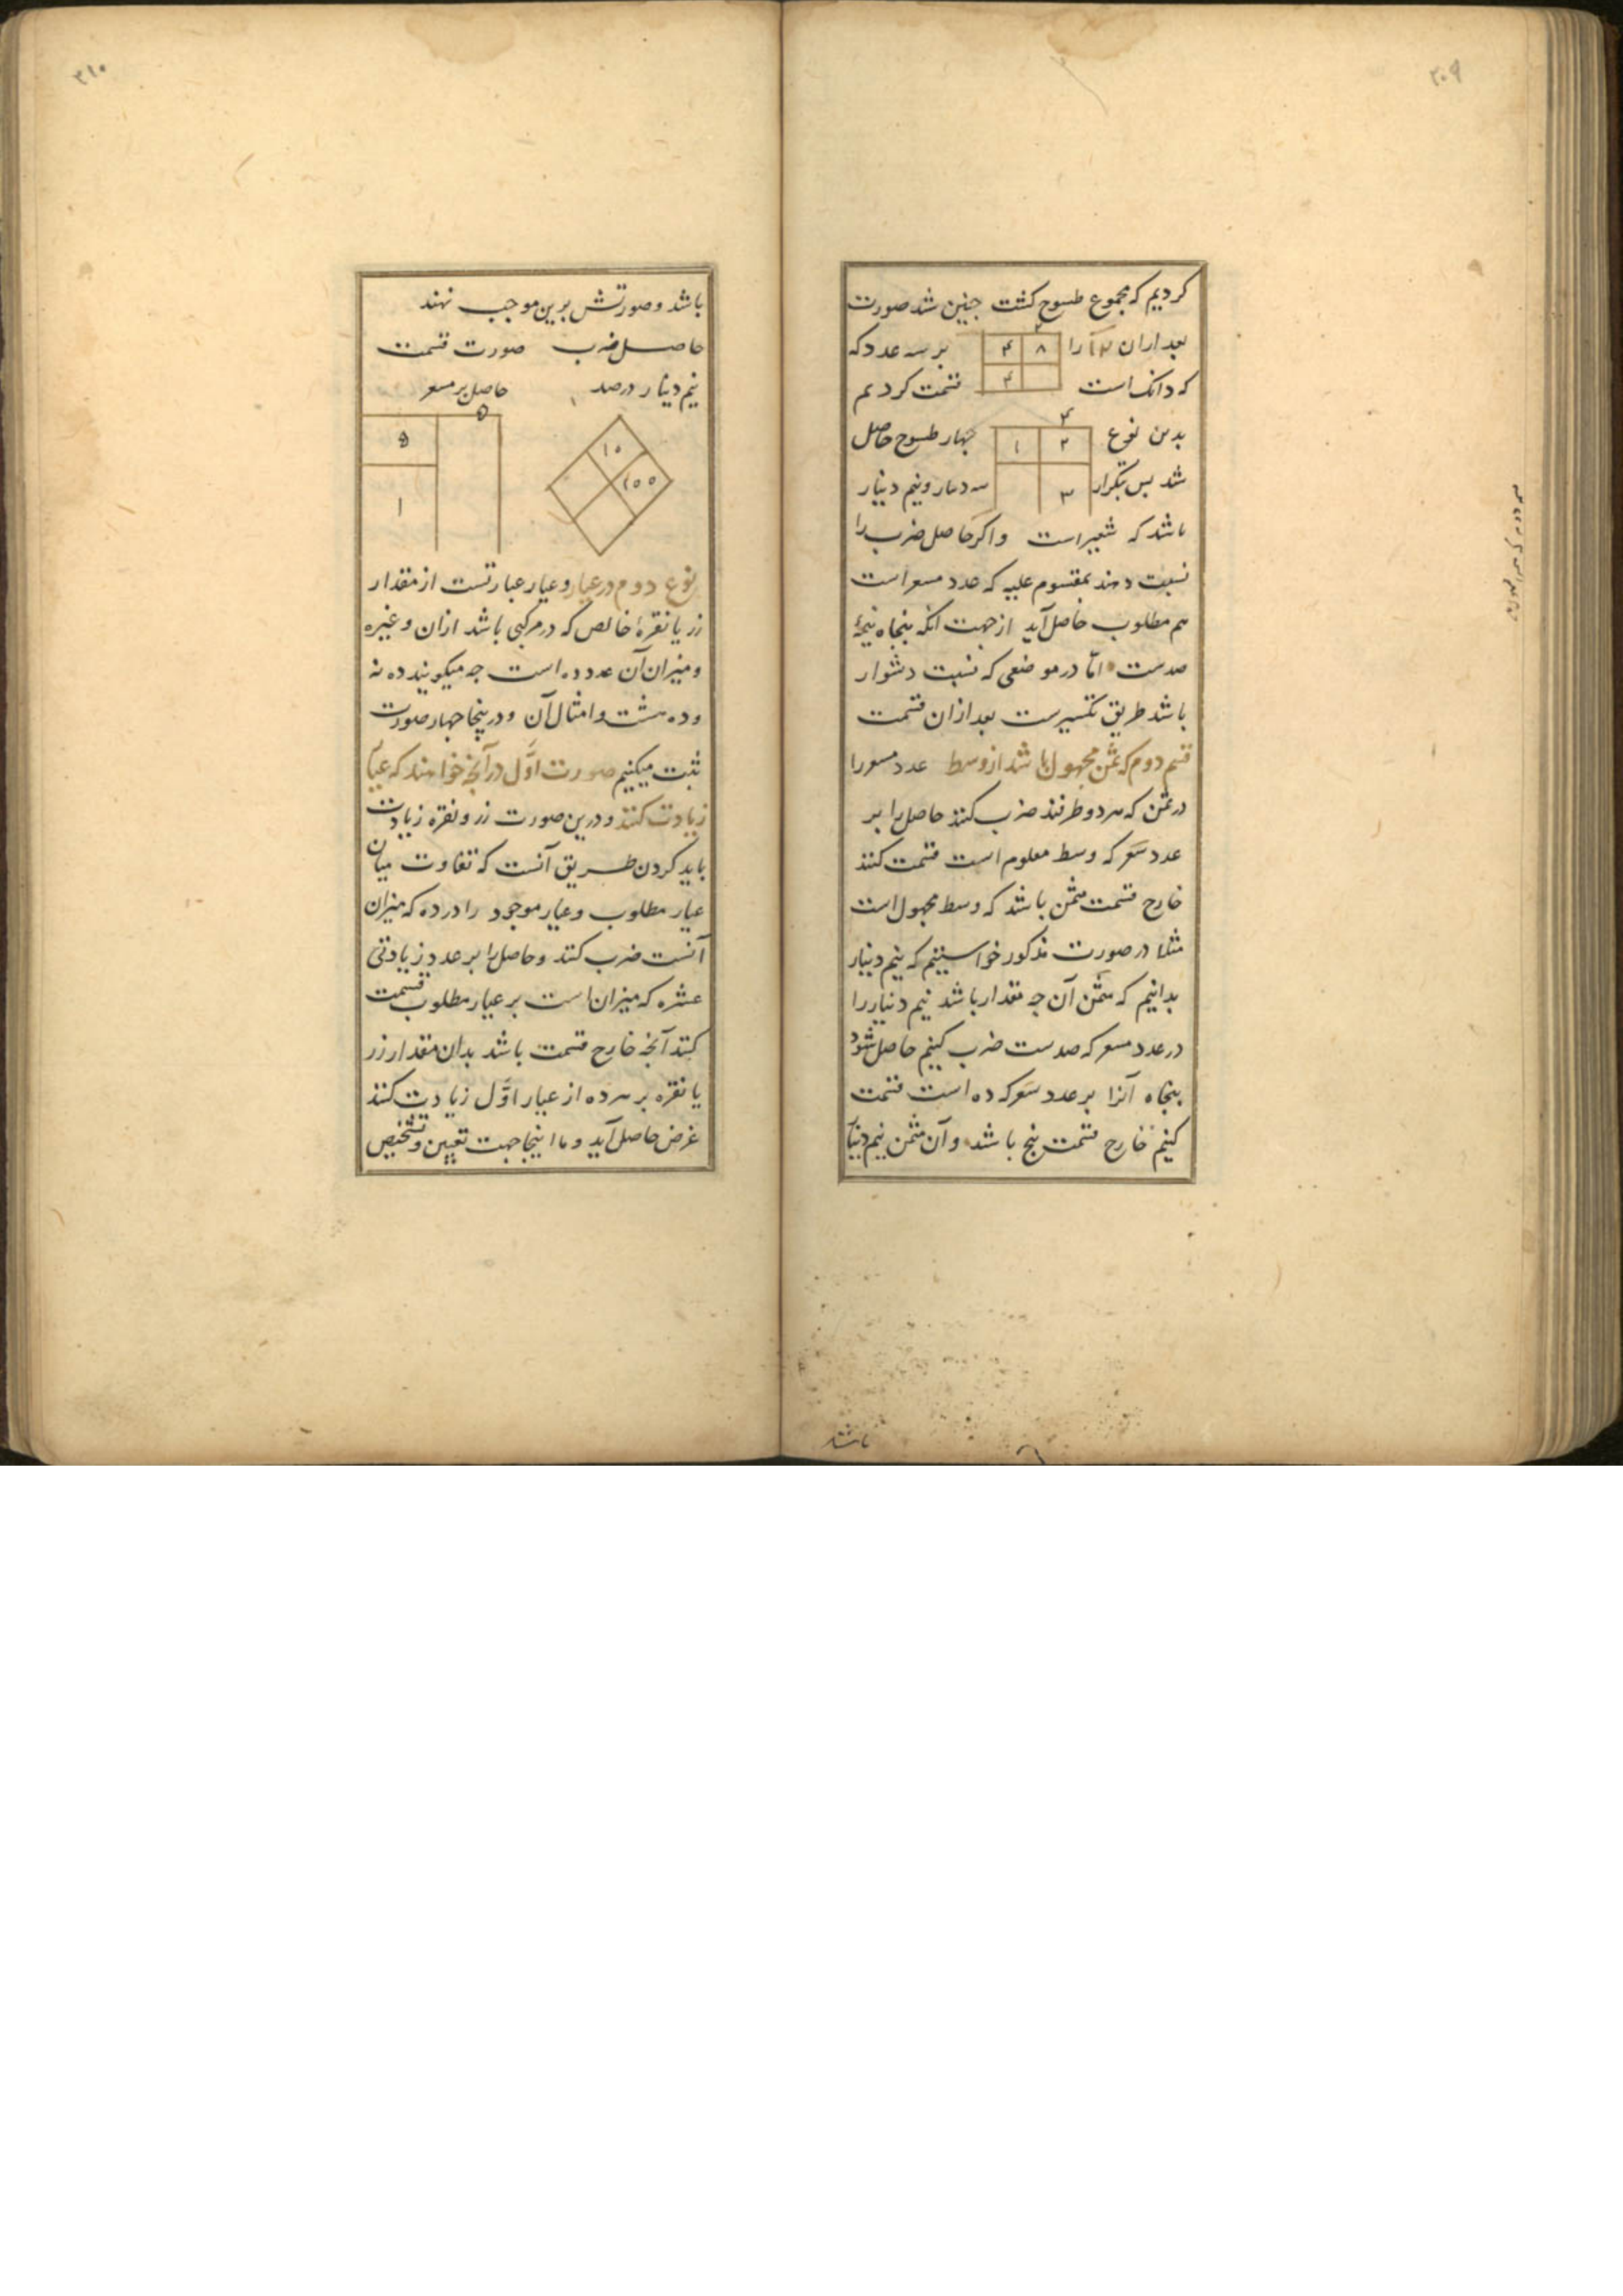 ۲۰۹
کردیم که مجموع طسوج کشت جنین شد صورت
۲
بعد ازان ۱۲ را
۸ ۴
بر سه عدد که
که دانک است
۴
قسمت کردیم
۴
بدین نوع
۲ ۱
جهار طسوج حاصل
شد بس بتکرار
۳
سه دینار و نیم دینار
باشد که شعیر است واکر حاصل ضرب را
نسبت دهند بمقسوم علیه که عدد مسعر است
هم مطلوب حاصل آید ازجهت انکه بنجاه نیمهٔ
صدست امّا در موضعی که نسبت دشوار
باشد طریق تکسیرست بعد ازان قسمت
قسم دوم که ثمن مجهول باشد از وسط عدد مسعر را
در ثمن که هر دو طرفند ضرب کنند حاصل را بر
عدد سَعر که وسط معلوم است قسمت کنند
خارج قسمت مثمن باشد که وسط مجهول است
مثلا در صورت مذکور خواستیم که نیم دینار
بدانیم که مثمن آن جه مقدار باشد نیم دینار را
در عدد مسعر که صدست ضرب کنیم حاصل شود
بنجاه آنرا بر عدد سَعر که ده است قسمت
کنیم خارج قسمت بنج باشد و آن مثمن نیم دینار
باشد
۲۱۰
باشد و صورتش برین موجب نهند
حاصل ضرب صورت قسمت
نیم دینار درصد حاصل بر مسعر
۵
۱۰
۱۰۰
۵
۱
نوع دوم در عیار و عیار عبارتست از مقدار
زر یا نقرهٔ خالص که در مرکبی باشد ازان و غیره
و میزان آن عدد ده است جه میکویند ده نه
و ده هشت و امثال آن و درینجا جهار صورت
ثبت میکنیم صورت اوّل در آنجه خواهند که عیار
زیادت کنند و درین صورت زر و نقره زیادت
باید کردن طریق آنست که تفاوت میان
عیار مطلوب و عیار موجود را در ده که میزان
آنست ضرب کنند و حاصل را بر عدد زیادتی
عشره که میزان است بر عیار مطلوب قسمت
کنند آنجه خارج قسمت باشد بدان مقدار زر
یا نقره بر هر ده از عیار اوّل زیادت کنند
غرض حاصل آید و ما اینجا جهت تعیین و تشخیص